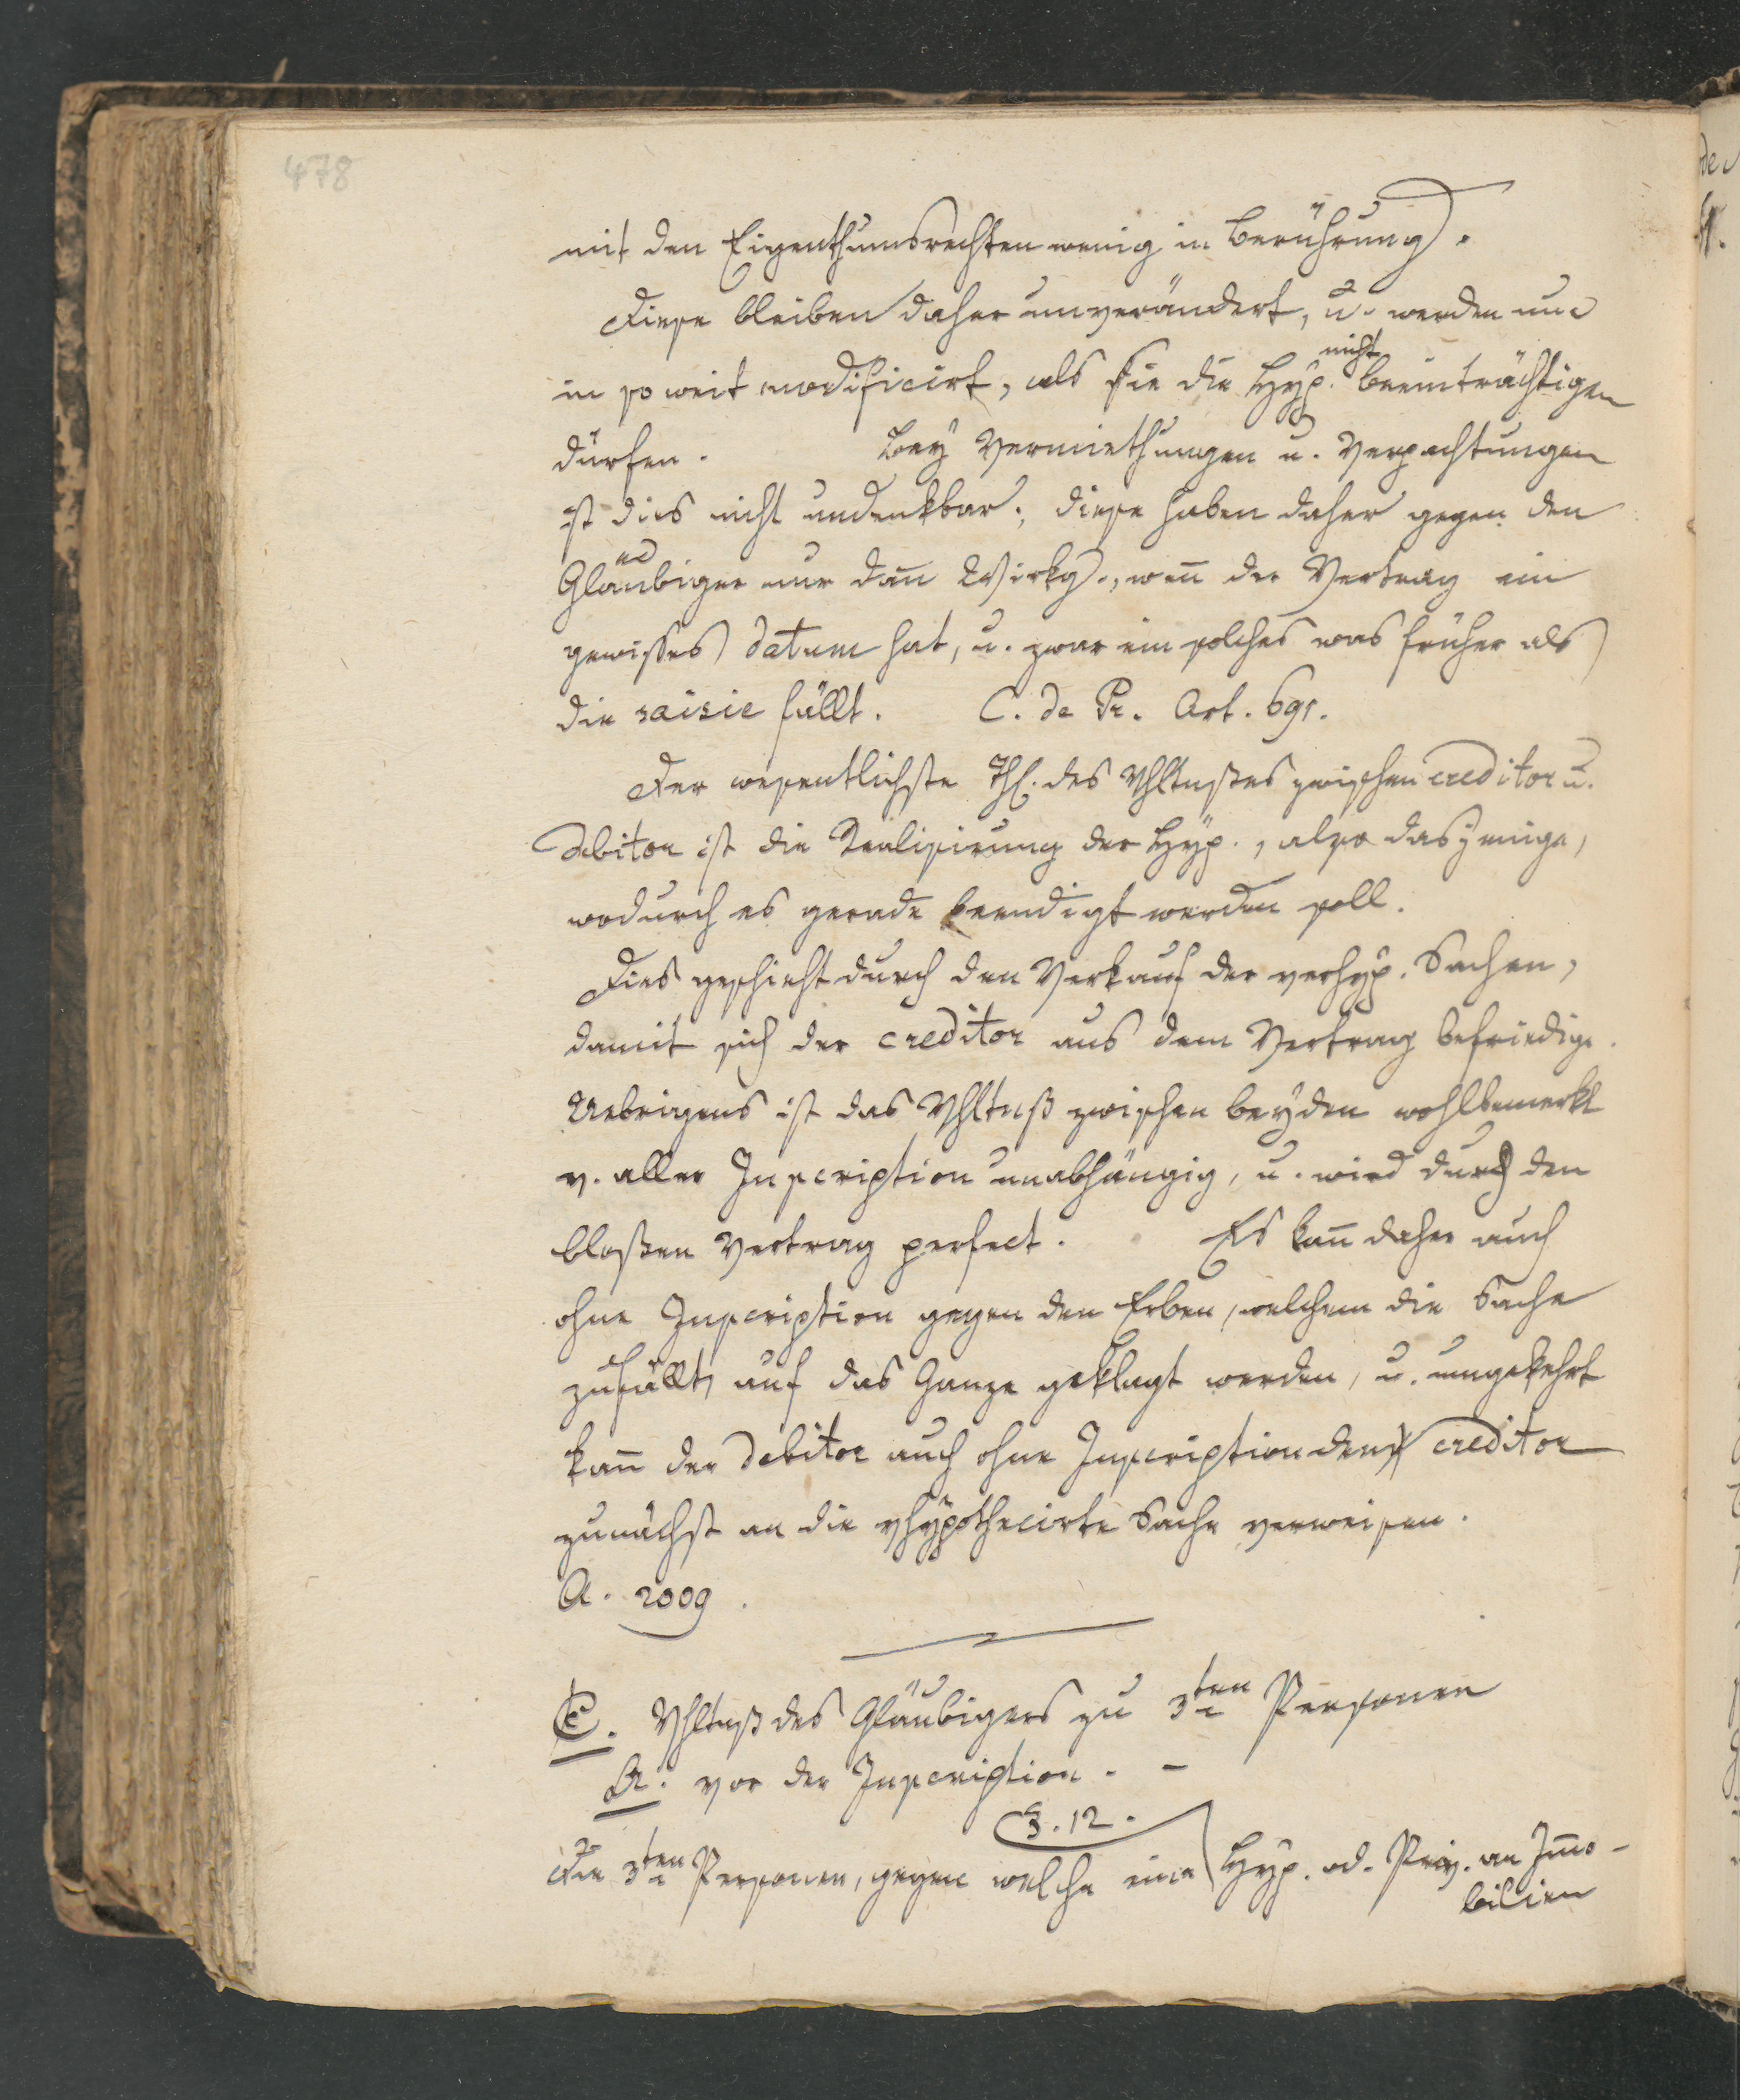 478
mit den Eigenthumsrechten wenig in Berührung.
Diese bleiben daher unverändert, u. werden nur
in so weit modificirt, als sie die Hyp. nicht beeinträchtigen
dürfen. Bey Vermiethungen u. Verpachtungen
ist dies nicht undenkbar; diese haben daher gegen den
Gläubiger nur dañ Wirkg., weñ der Vertrag ein
gewisses datum hat, u. zwar ein solches was früher als
die saisie fällt. C. de Pr. Art. 691.
Der wesentlichste Thl. des Vhltnßes zwischen creditor u.
debitor ist die Realisirung der Hyp., also dasjenige,
wodurch es gerade beendigt werden soll.
Dies geschieht durch den Verkauf der verhyp. Sachen,
damit sich der creditor aus dem Vertrag befriedige.
Uebrigens ist das Vhltnß zwischen beyden wohlbemerkt
v. aller Inscription unabhängig, u. wird durch den
bloßen Vertrag perfect. Es kañ daher auch
ohne Inscription gegen den Erben, welchem die Sache
zufällt, auf das Ganze geklagt werden, u. umgekehrt
kañ der debitor auch ohne Inscription den creditor
zunächst an die vhypothecirte Sache verweisen.
A. 2009.
C. Vhltnß des Gläubigers zu 3ten Personen
A. vor der Inscription. -
§. 12.
Die 3ten Personen, gegen welche eine Hyp. od. Priv. an Im̃o-
bilien